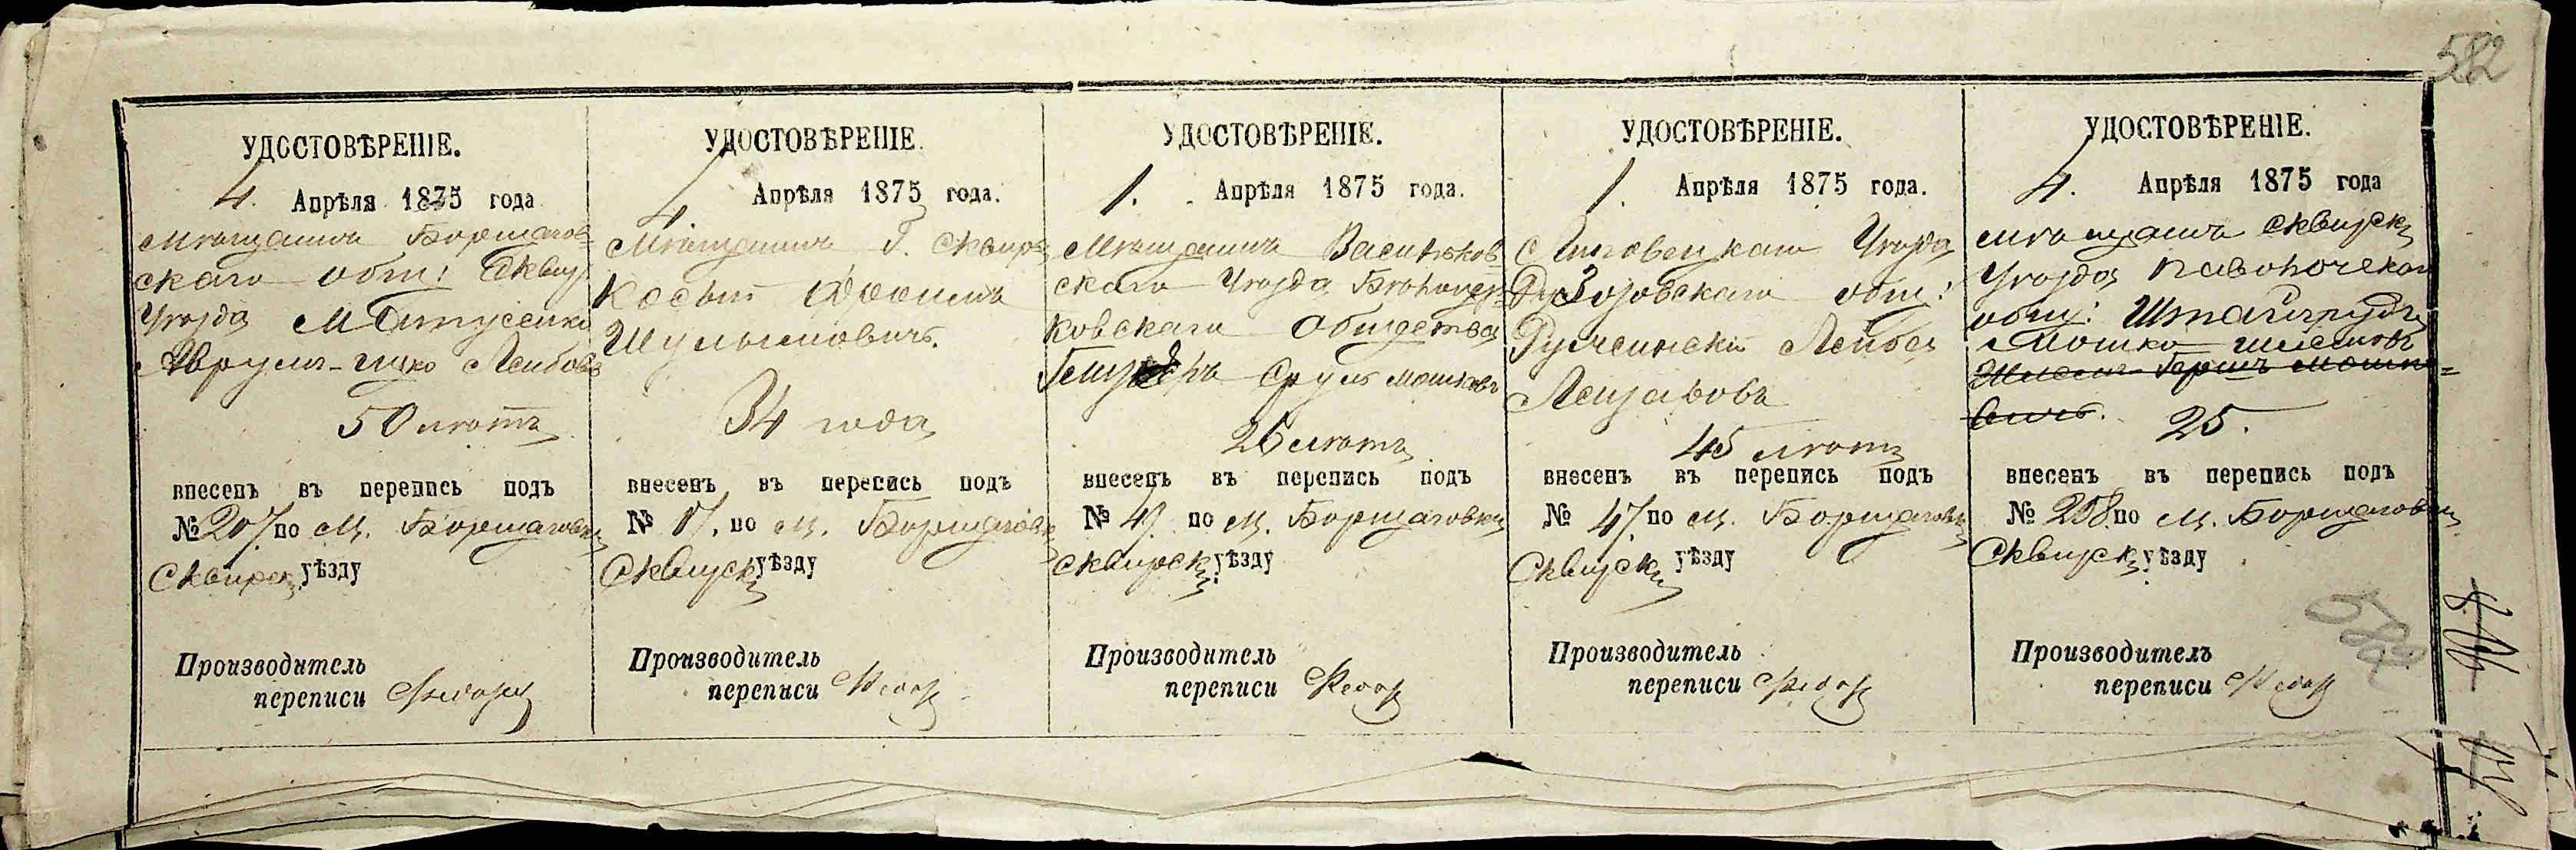 582
УДОСТОВѢРЕНІЕ.
4. Апрѣля 1875 года
Мѣщанинъ Борщагов-
скаго общ: Сквир
Уѣзда Матусенко
Аврумъ-Ицко Лейбовъ
50 лѣтъ
внесенъ въ перепись подъ
№ 207. по м. Борщаговки
Сквирск уѣзду
Производитель
переписи
УДОСТОВѢРЕНІЕ.
4. Апрѣля 1875 года.
Мѣщанинъ Г. Сквиры
Косый Фроимъ
Шулимовичъ.
34 года
внесенъ въ перепись подъ
№ 17. по м. Борщаговк
Сквирск уѣзду
Производитель
переписи
УДОСТОВѢРЕНІЕ.
1. Апрѣля 1875 года.
Мѣщанинъ Васильков
скаго Уѣзда
ковскаго Общества
Сруль Мошковъ
26 лѣтъ
внесенъ въ перепись подъ
№ 4. по м. Борщаговки
Сквирск уѣзду
Производитель
переписи
УДОСТОВѢРЕНІЕ.
1. Апрѣля 1875 года.
Липовецкаго Уѣзда
общ:
Лейба
45 лѣтъ
внесенъ въ перепись подъ
№ 47. по м. Борщаговки
Сквирск уѣзду
Производитель
переписи
УДОСТОВѢРЕНІЕ.
4. Апрѣля 1875 года
мѣщанинъ Сквирск
Уѣзда Паволочскаго
общ: Штайнгудъ
Мошко
Герщъ Мошко-
вичъ. 25.
внесенъ въ перепись подъ
№ 258. по м. Борщаговки
Сквирск уѣзду
Производитель
переписи